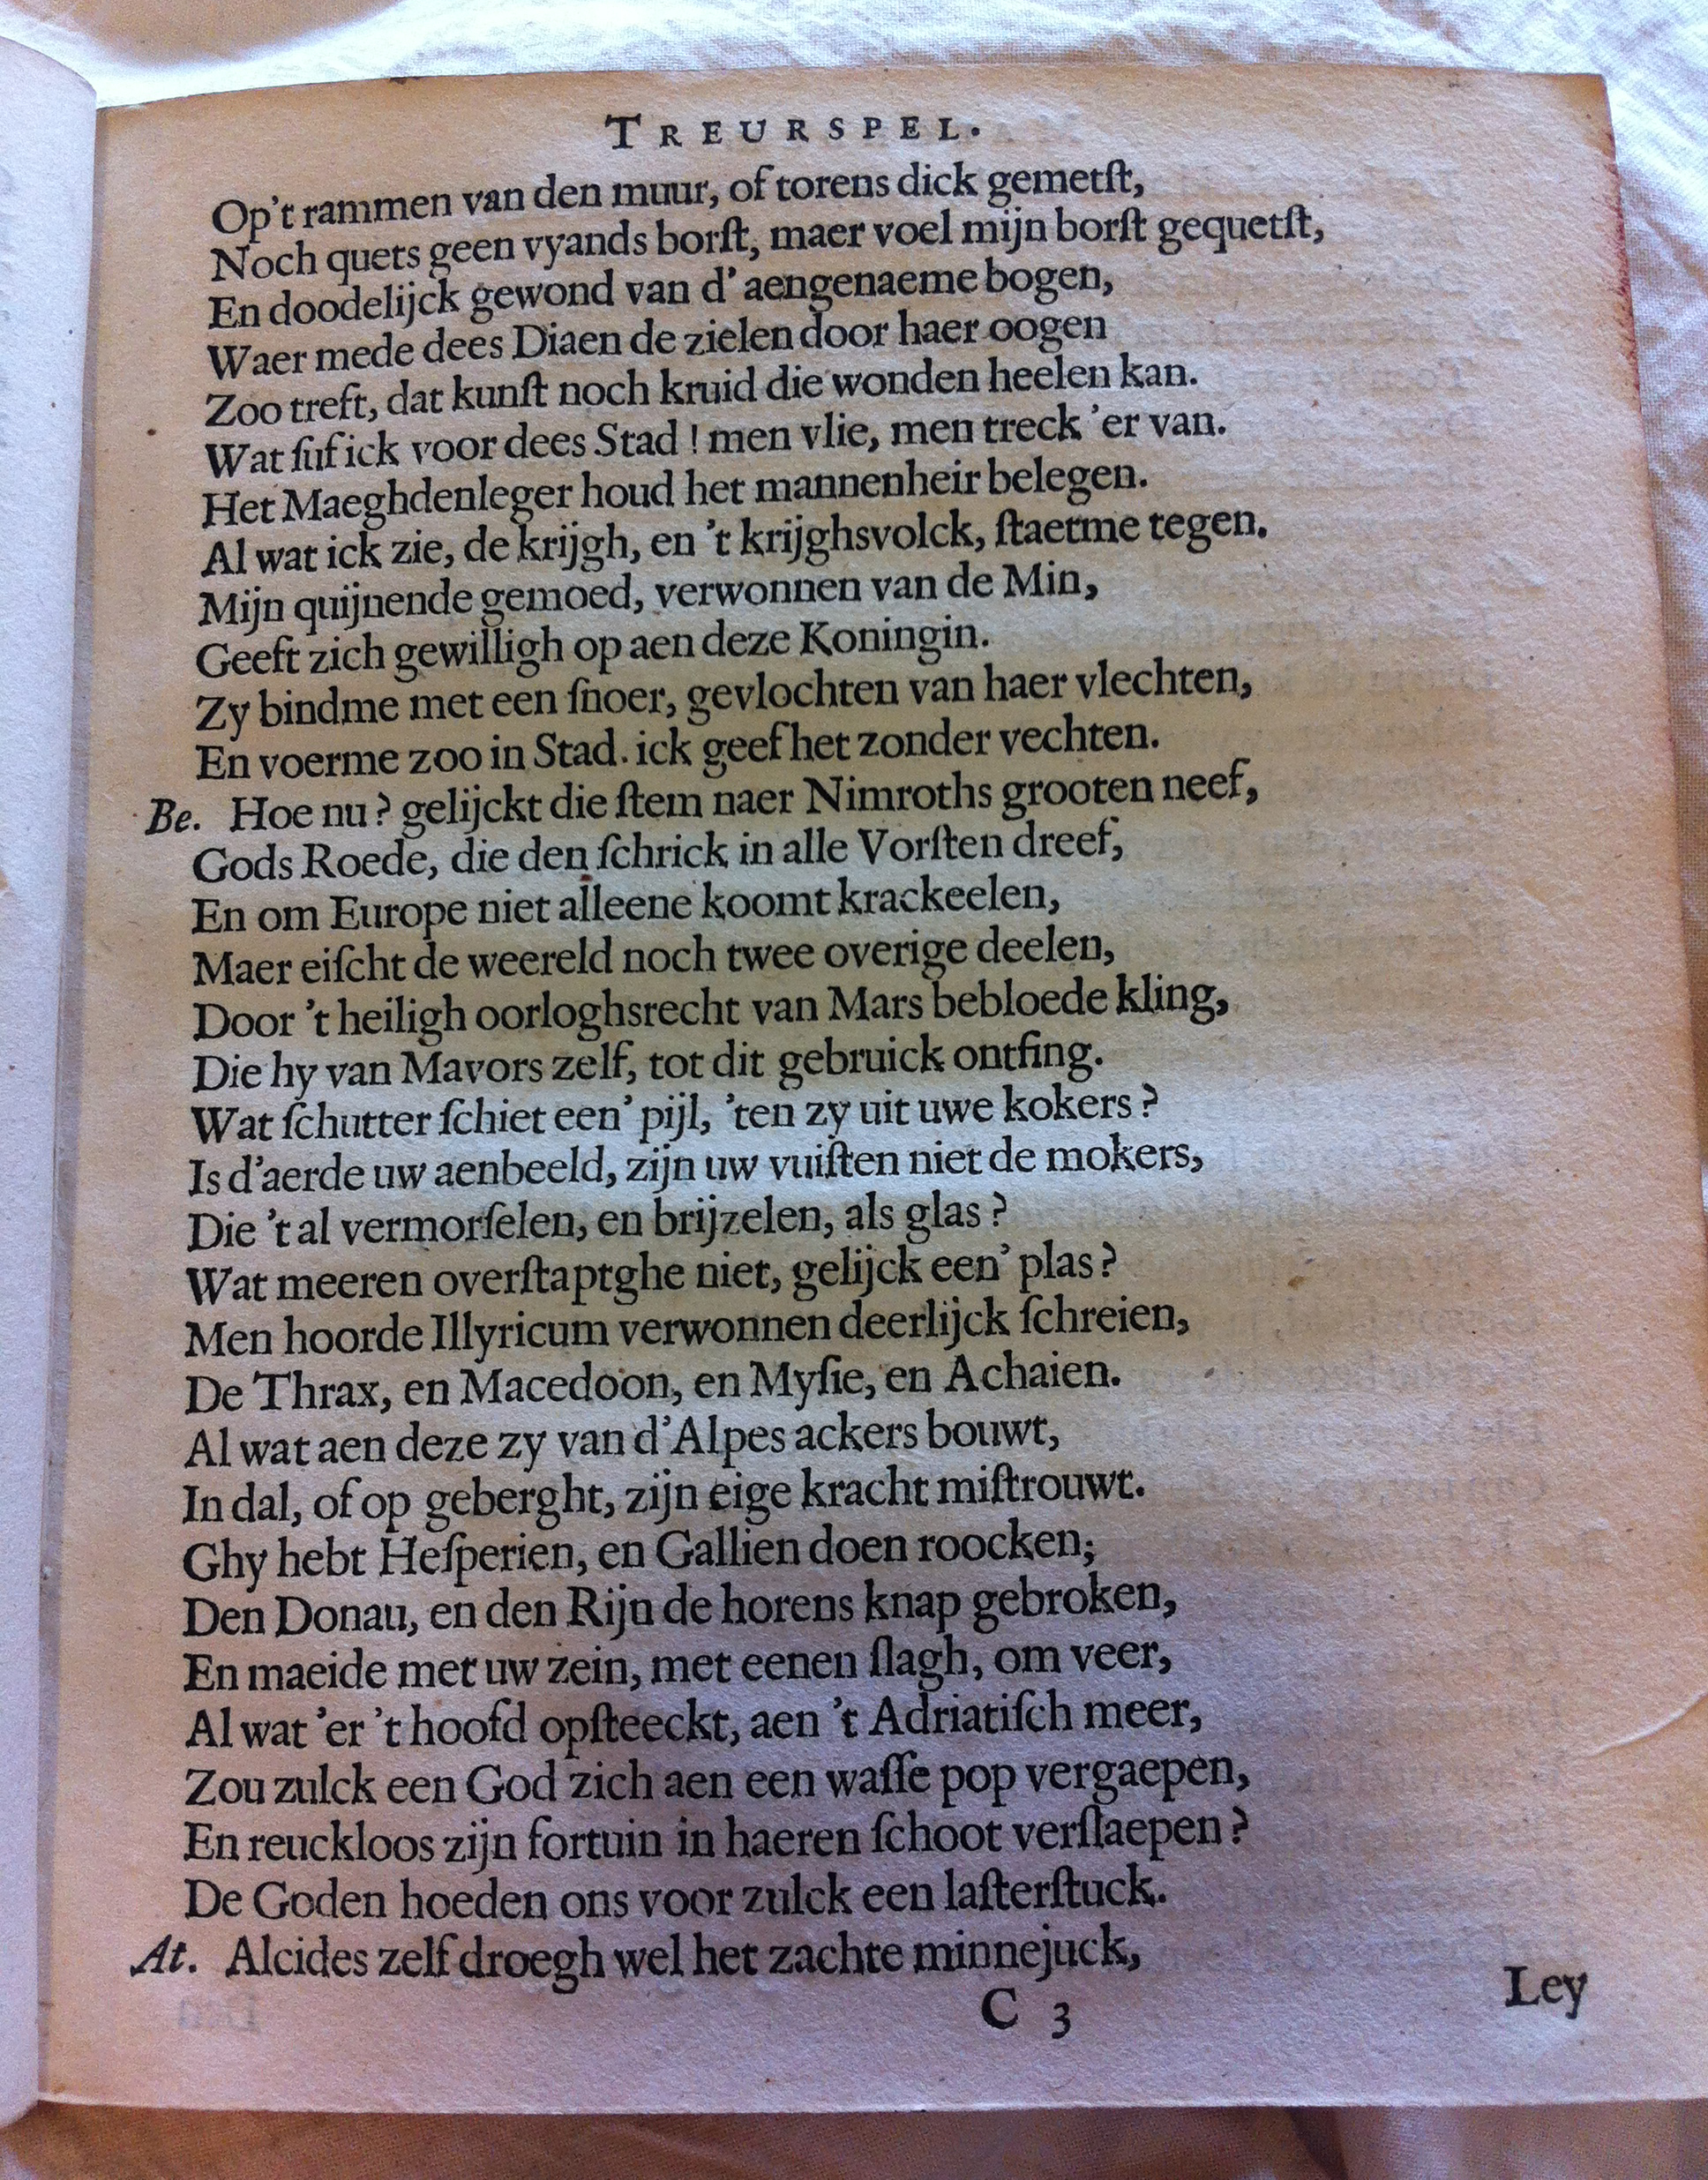 TREURSPEL.
Op't rammen van den muur, of torens dick gemetſt,
Noch quets geen vyands borſt, maer voel mijn borſt gequetſt,
En doodelijck gewond van d'aengenaeme bogen,
Waer mede dees Diaen de zielen door haer oogen
Zoo treft, dat kunſt noch kruid die wonden heelen kan.
Wat ſuf ick voor dees Stad ! men vlie, men treck 'er van.
Het Maeghdenleger houd het mannenheir belegen.
Al wat ick zie, de krijgh, en 't krijghsvolck, ſtaetme tegen.
Mijn quijnende gemoed, verwonnen van de Min,
Geeft zich gewilligh op aen deze Koningin.
Zy bindme met een ſnoer, gevlochten van haer vlechten,
En voerme zoo in Stad. ick geef het zonder vechten.
Be. Hoe nu? gelijckt die ſtem naer Nimroths grooten neef,
Gods Roede, die den ſchrick in alle Vorſten dreef,
En om Europe niet alleene koomt krackeelen,
Maer eiſcht de weereld noch twee overige deelen,
Door 't heiligh oorloghsrecht van Mars bebloede kling,
Die hy van Mavors zelf, tot dit gebruick ontfing.
Wat ſchutter ſchiet een' pijl, 'ten zy uit uwe kokers?
Is d'aerde uw aenbeeld, zijn uw vuiſten niet de mokers,
Die 't al vermorſelen, en brijzelen, als glas?
Wat meeren overſtaptghe niet, gelijck een' plas?
Men hoorde Illyricum verwonnen deerlijck ſchreien,
De Thrax, en Macedoon, en Myſie, en Achaien.
Al wat aen deze zy van d'Alpes ackers bouwt,
In dal, of op geberght, zijn eige kracht miſtrouwt.
Ghy hebt Heſperien, en Gallien doen roocken;
Den Donau, en den Rijn de horens knap gebroken,
En maeide met uw zein, met eenen ſlagh, om veer,
Al wat 'er 't hoofd opſteeckt, aen 't Adriatiſch meer,
Zou zulck een God zich aen een waſſe pop vergaepen,
En reuckloos zijn fortuin in haeren ſchoot verſlaepen?
De Goden hoeden ons voor zulck een laſterſtuck.
At. Alcides zelf droegh wel het zachte minnejuck,
C 3
Ley